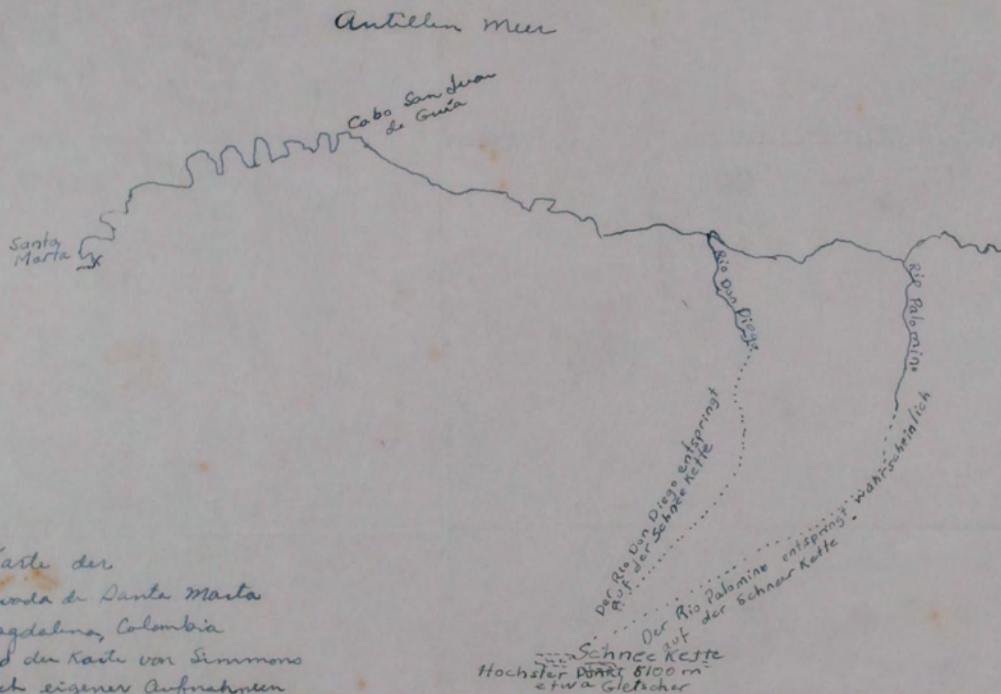 Antillen Meer
Cabo San Juan
de Guia
Santa
Marta
Rio Don Diego
Rio Palomino
Der Rio Don Diego entspringt
auf der Schnee Kette
Der Rio Palomino entspringt wahrscheinlich
auf der Schnee Kette
Schnee Kette
Hochster Punkt 5100 m
etwa Gletscher
Karte der
vada de Santa Marta
agdalena, Colombia
d der Karte von Simmons
ch eigener Aufnahmen